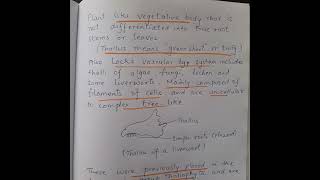 Plant like vegetative body that is
not differentiated into true root
stems or leaves
(Thallus means 'green shoot' or twig)
Also Lacks vascular type system includes
thalli of algae, fungi, lichen and
some liverworts. Mainly composed of
filaments of cells and are unicellular
to complex tree like
Thallus
simple roots (rhizoid)
(Thallus of a liverwort)
These were previously placed in the
Thallophyta and are